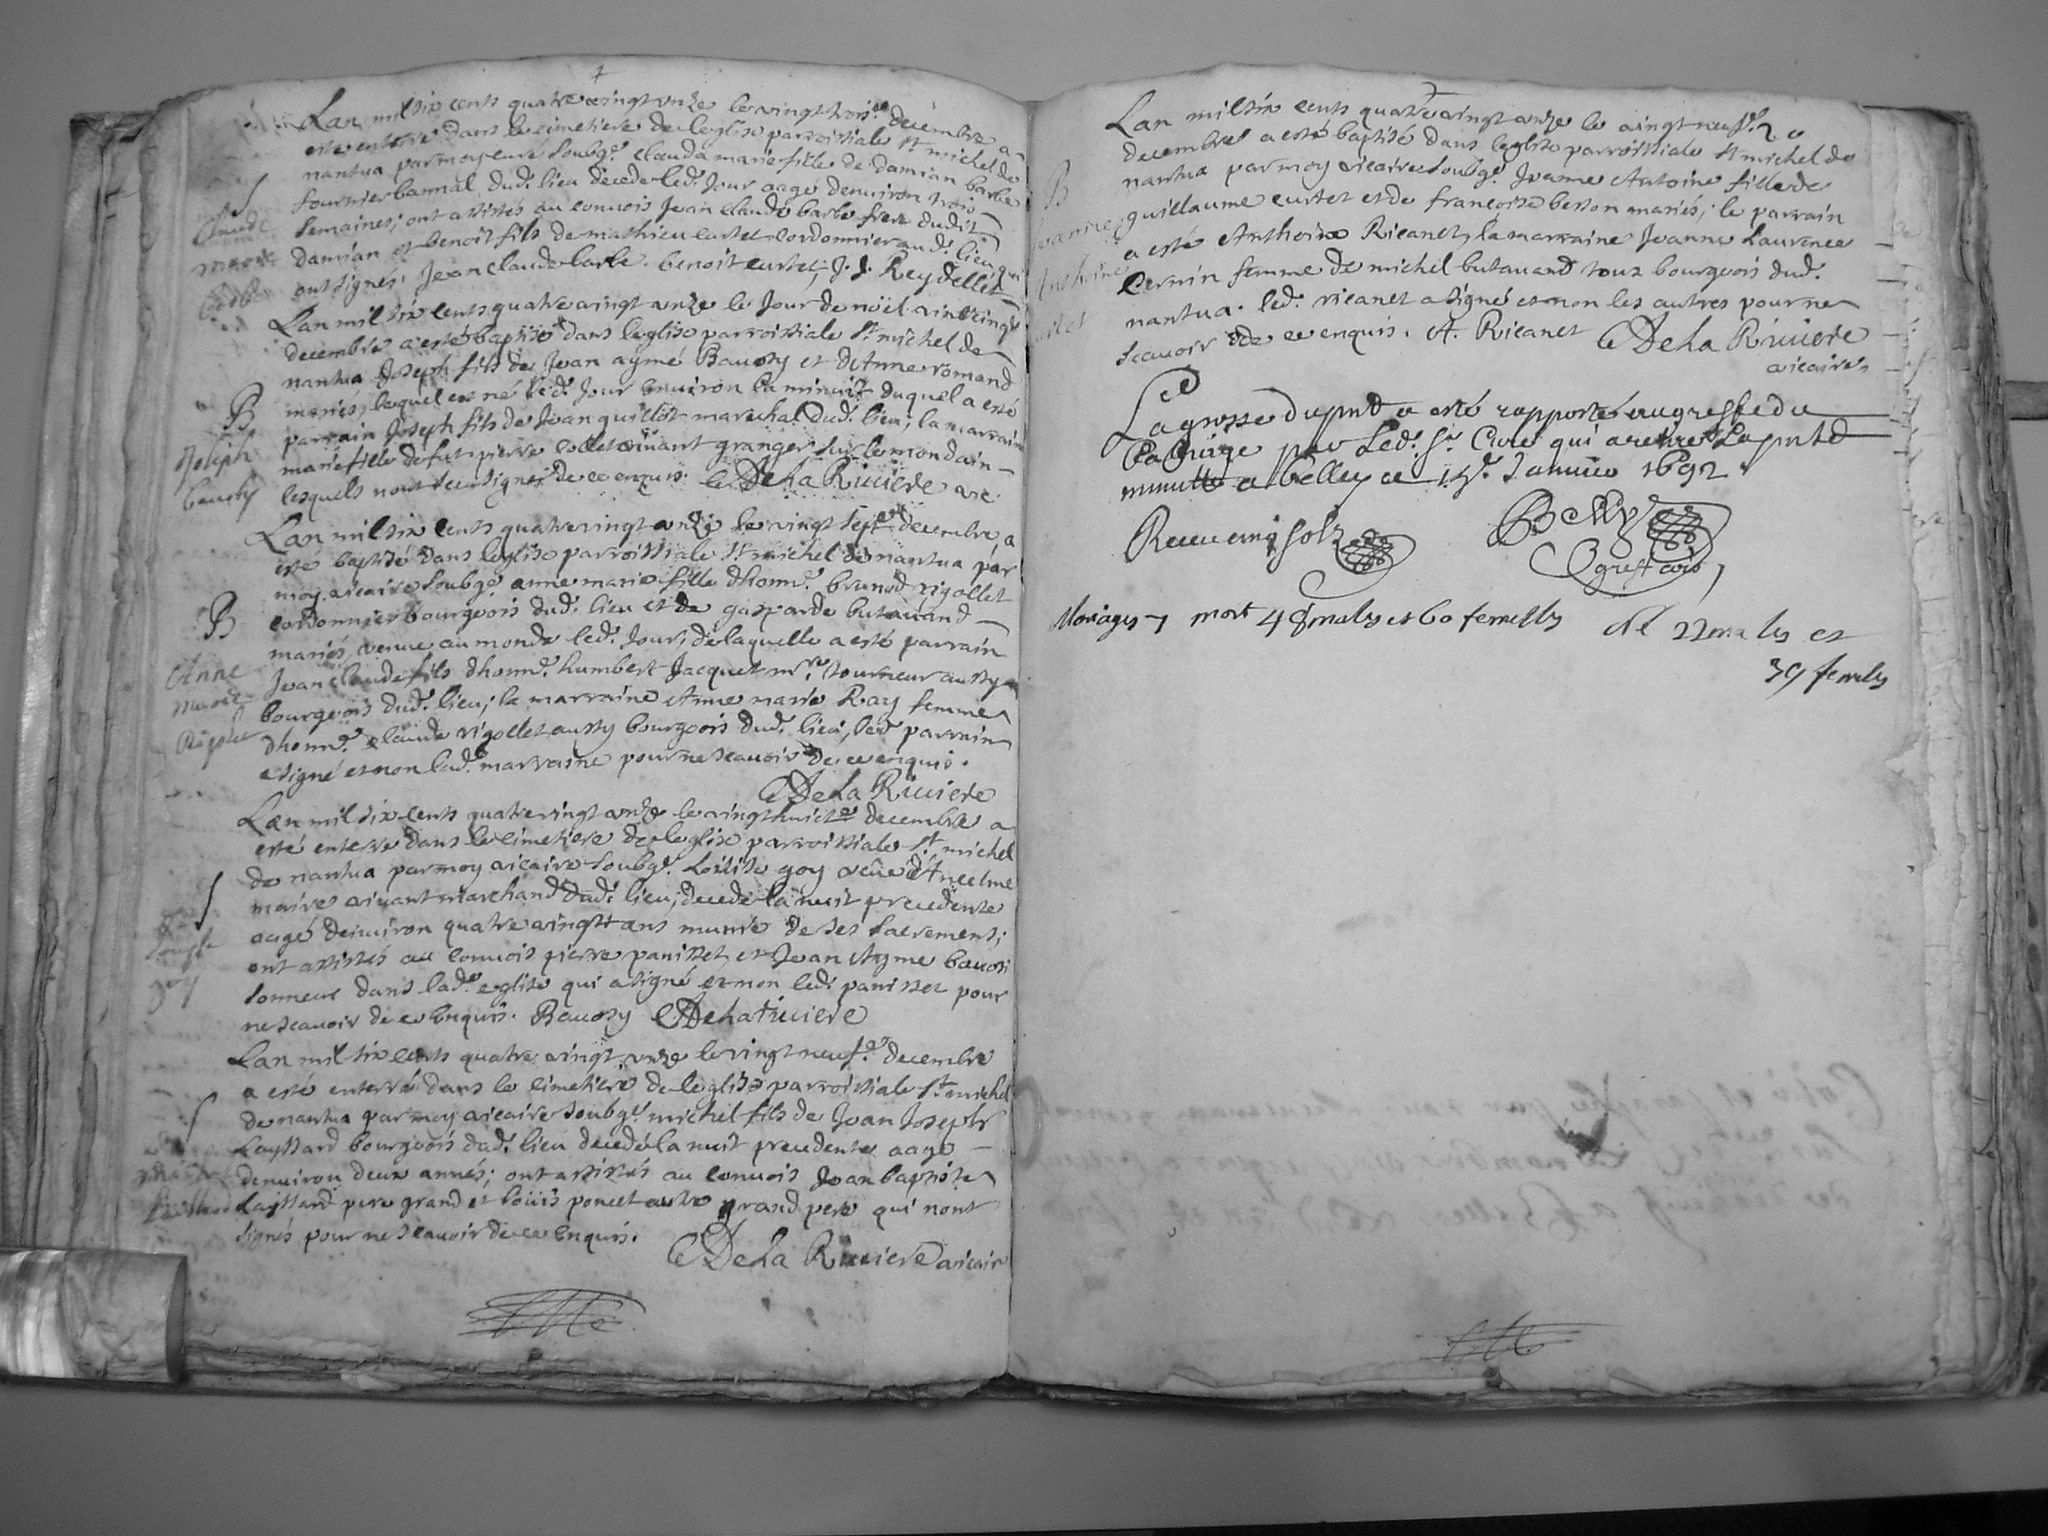 Lan mil six cents quatre vingt unze le vingt trois.e decembre a
esté enterré dans le cimetiere de leglise parroissiale st michel de
nantua par moy curé soubgé. clauda marie fille de damian barbe
fournier bannal dud. lieu decede led. Jour aage denuiron trois
semaines; ont assistés au conuois Jean claude barbe frere dudit
damian et benoit fils de mathieu curtet cordonnier aud. lieu qui
ont signes. Jean claude barbe. benoit curtet, J. J. Reydellet
S
claude
marie
barbe
Lan mil six cents quatre vingt unze le Jour de noël vint cinq
decembre a esté baptisé dans leglise parroissiale st michel de
nantua Joseph fils de Jean aymé Bauosy et de Anne romand
mariés, lequel est né led. Jour enuiron la minuit duquel a esté
parrain Joseph fils de Jean guillot marechal dud. lieu; la marraine
marie fille de fut pierre collet viuant granger sur le mondain
lesquels nont seu signer de ce enquis. C DeLa Riuiere vic
B
Joseph
bauosy
Lan mil six cents quatre vingt unze le vingt sept.e decembre, a
esté baptisé dans leglise parroissiale st michel de nantua par
moy vicaire soubgé. anne marie fille dhonn.e brunod rigollet
cordonnier bourgeois dud. lieu et de gasparde butauand
mariés, venue au monde led. Jour, de laquelle a esté parrain
Jean claude fils dhonn.e humbert Jacquet m.re tourneur aussy
bourgeois dud. lieu; la marraine Anne marie Ray femme
dhonn.e claude rigollet aussy bourgeois dud. lieu, led parrain
a signé et non lad. marraine pour ne scauoir de ce enquis.
C DeLa Riuiere
B
Anne
marie
Rigollet
Lan mil six cents quatre vingt unze le vingt huict.e decembre a
esté enterré dans le cimetiere de leglise parroissiale st. michel
de nantua par moy vicaire soubgé. Loüise goy veüe dAncelme
maire viuant marchand dud. lieu, decede la nuit precedente
aagé denuiron quatre vingtt ans munie de ses sacrements;
ont assistés au conuois pierre panisset et Jean Ayme bauosi
sonneur dans lad.e eglise qui a signé et non led. panisset pour
ne scauoir de ce Enquis. Bauosy C DeLa riuiere
S
Louise
goy
Lan mil six cents quatre vingt unze le vingt neuf.e decembre
a esté enterré dans le cimetiere de leglise parroissiale st michel
de nantua par moy vicaire soubgé. michel fils de Jean Joseph
Layssard bourgeois dud. lieu decedé la nuit precedente aage
denuiron deux annés; ont assistés au conuois Jean baptiste
Layssard pere grand et loüis poncet autre grand pere qui nont
signés pour ne scauoir de ce Enquis.
C DeLa Riuiere vicaire
S
michel
Layssard
Lan mil six cents quatre vingt unze le vingt neuf.e
decembre a esté baptisé dans leglise parroissiale st michel de
nantua par moy vicaire soubgé. Jeanne Antoine fille de
guillaume curtet et de francoise beston mariés; le parrain
a esté Anthoine Ricanet, la marraine Jeanne Laurence
Cernin femme de michel butauand tous bourgeois dud.
nantua. led. ricanet a signé et non les autres pour ne
scauoir de ce enquis. A. Ricanet C DeLa Riuiere
vicaire,
B
Jeanne
Anthoine
curtet
La grosse du pnt a esté rapportée au greffe du
Bailliage par Led. Sr. Curé qui a retiré La pnte
minutte a belley ce 15e. Januier 1692
Mariages 7 mort 48 males et 60 femelles né 22 males et
39 femeles